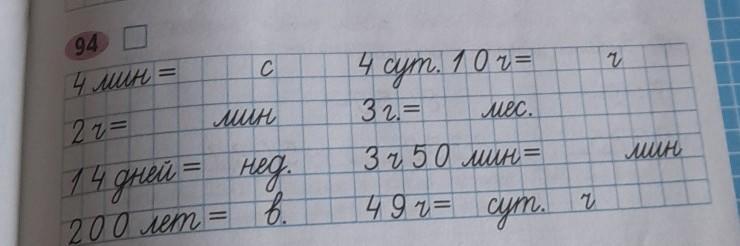 94
4 мин = с 4 сут. 10 ч = ч
2 ч = мин 3 г. = мес.
14 дней = нед. 3 ч 50 мин = мин
200 лет = в. 49 ч = сут. ч